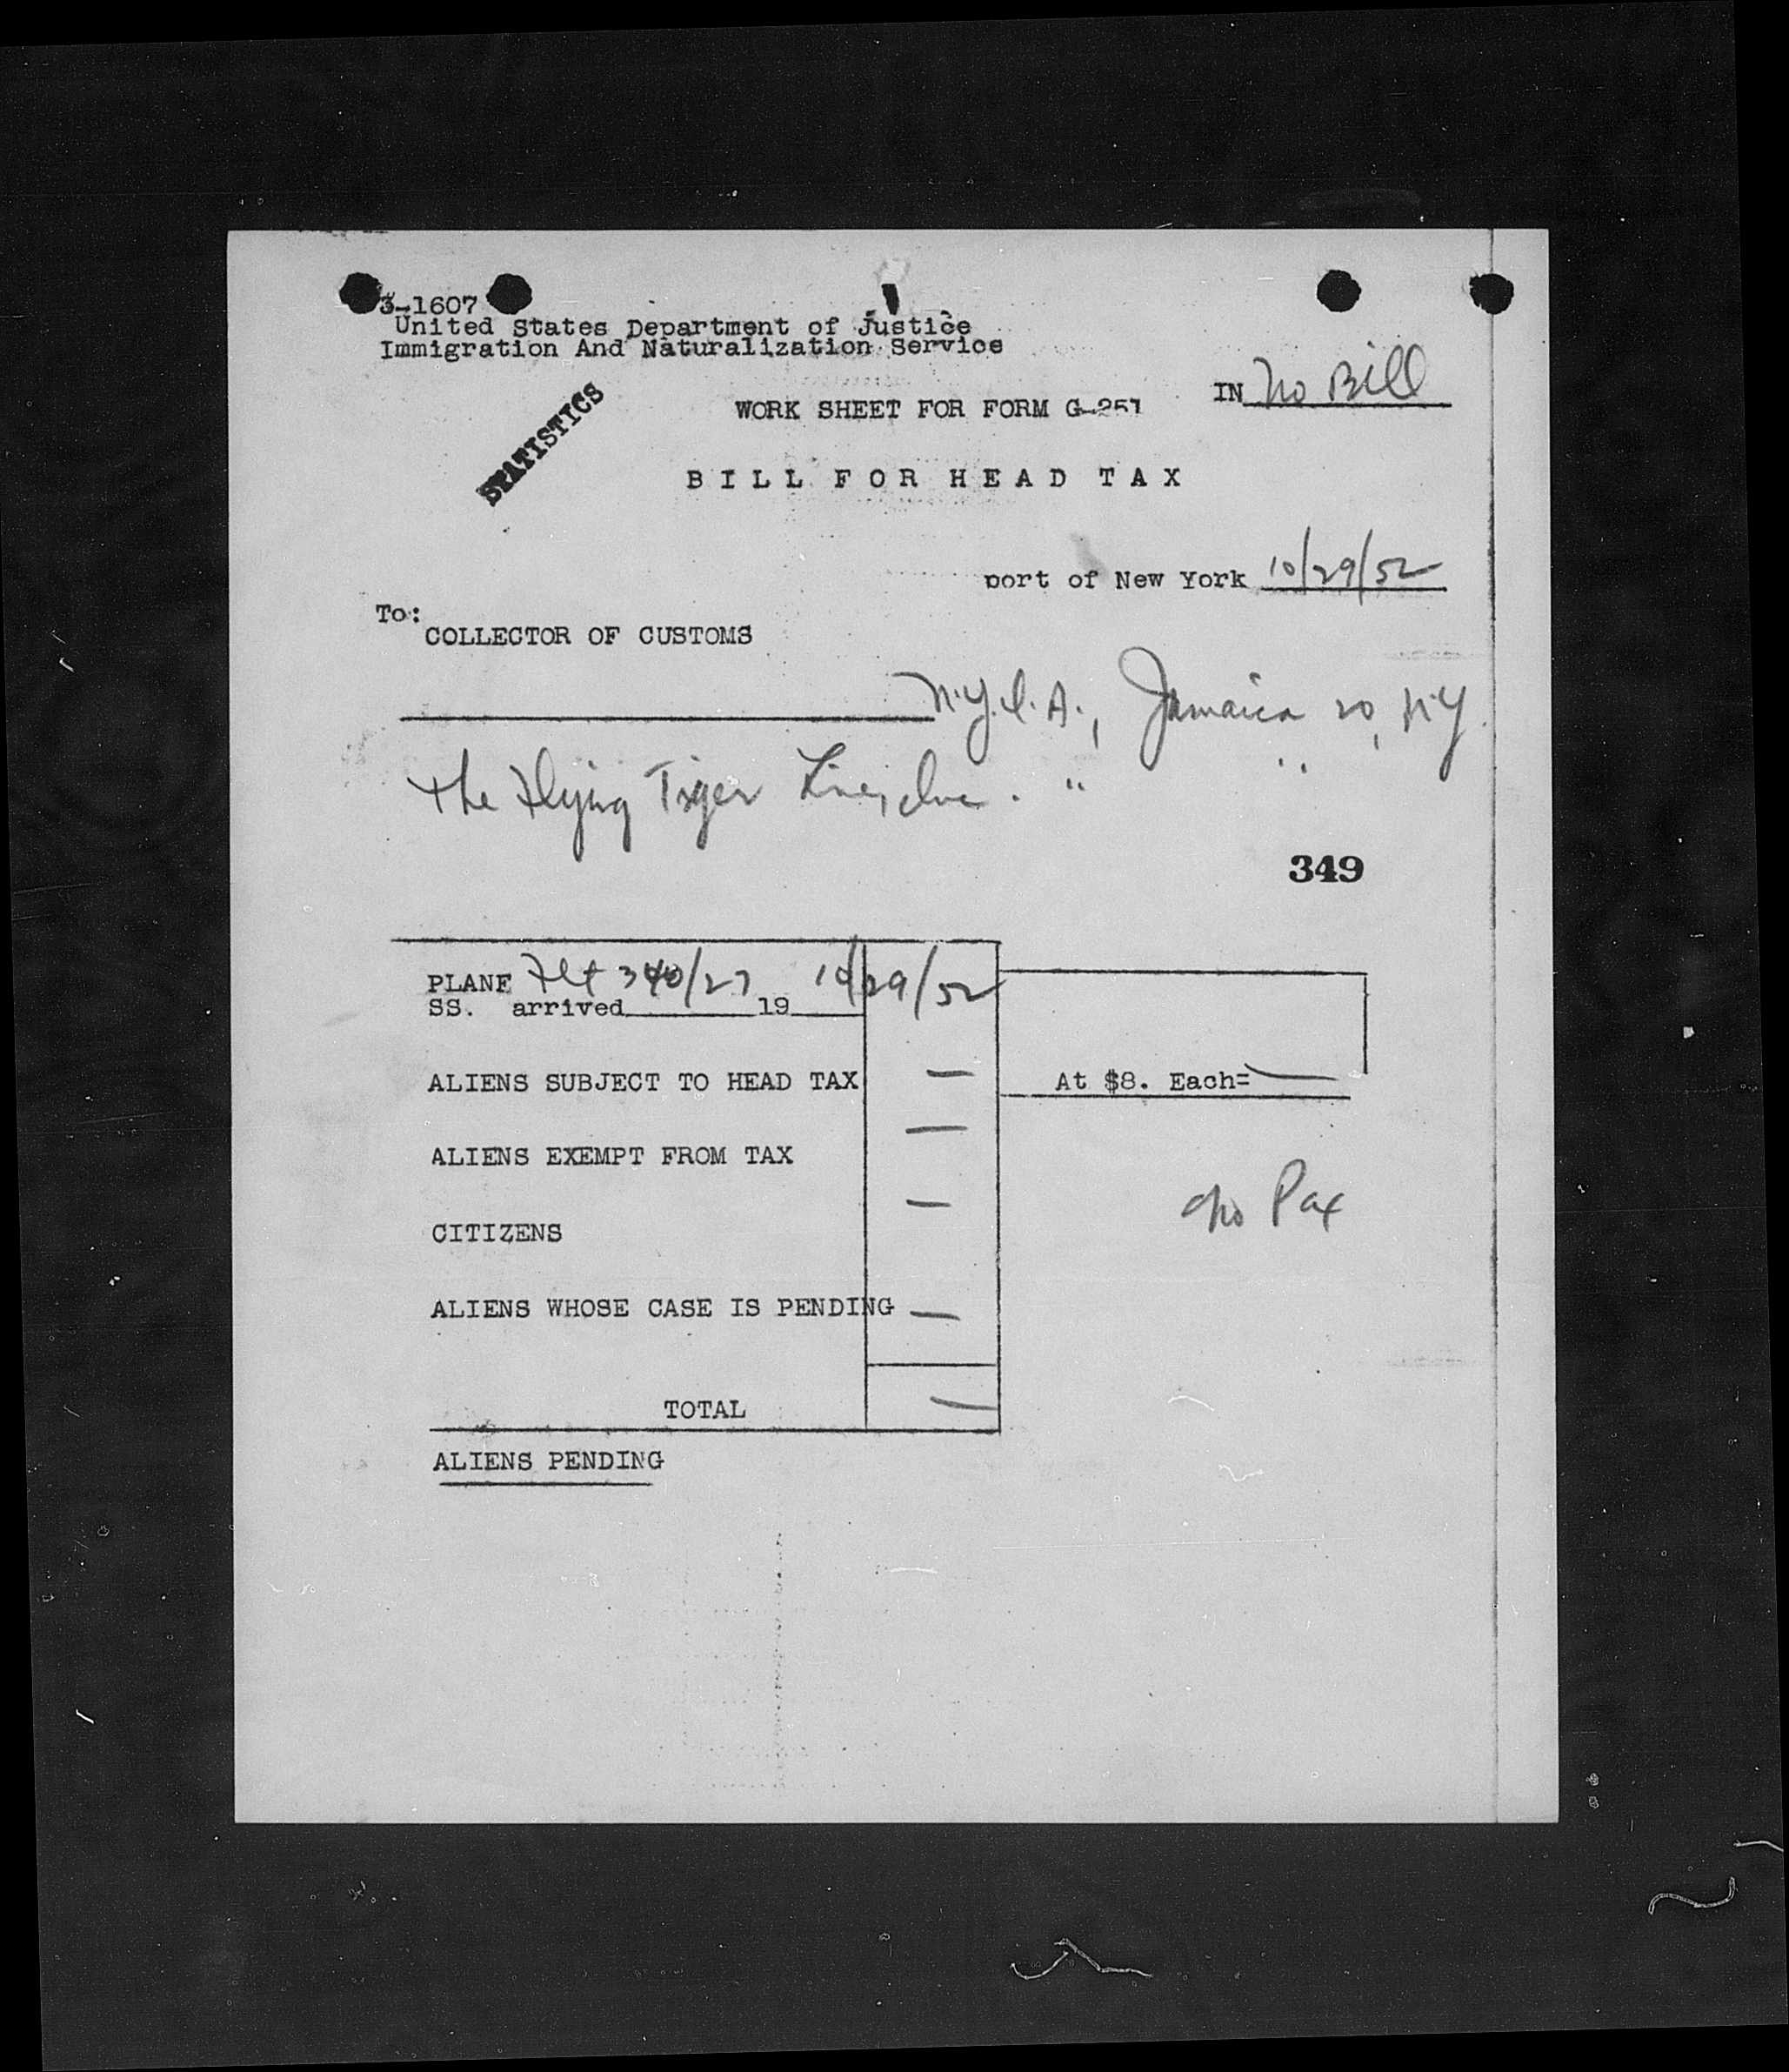 3-1607
United States Department of Justice
Immigration And Naturalization Service
IN No Bill
WORK SHEET FOR FORM G-257
STATISTICS
BILL FOR HEAD TAX
port of New York 10/29/52
To:
COLLECTOR OF CUSTOMS
N.Y.I.A., Jamaica 20, N.Y.
The Flying Tiger Line, Inc. " "
349
PLANE Flt 340/27 10/29/52
SS. arrived 19
ALIENS SUBJECT TO HEAD TAX — At $8. Each= —
ALIENS EXEMPT FROM TAX —
CITIZENS —
No Pax
ALIENS WHOSE CASE IS PENDING —
TOTAL —
ALIENS PENDING